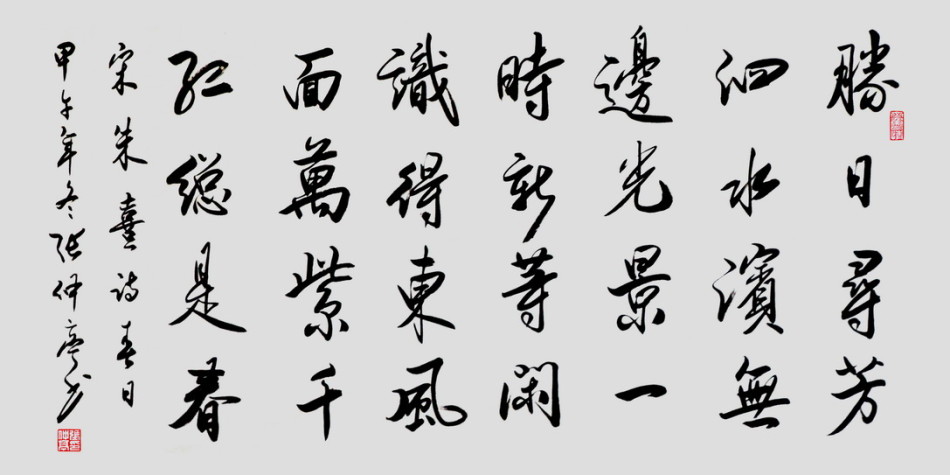 勝日尋芳
泗水濱無
邊光景一
時新等閑
識得東風
面萬紫千
红總是春
宋朱熹詩春日
甲午年冬张仲亭书